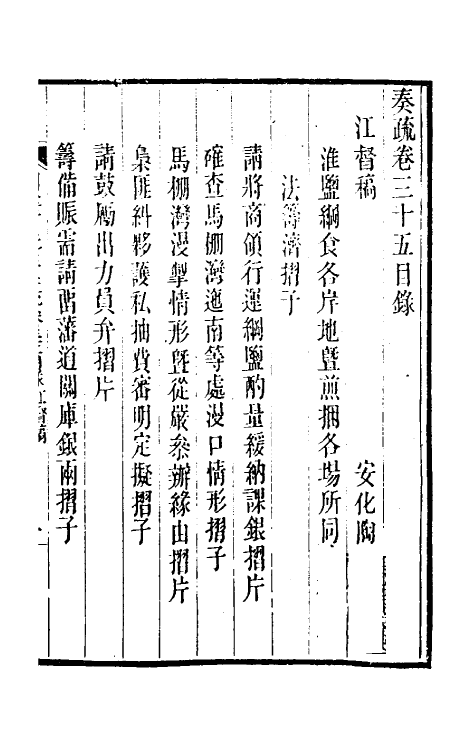 奏疏卷三十五目錄
江督稿 安化陶
淮鹽綱食各岸地暨煎捆各場所同
法籌濟摺子
請將商領行運綱鹽酌量緩納課銀摺片
確查馬棚灣迤南等處漫口情形摺子
馬棚灣漫掣情形暨從嚴參辦緣由摺片
梟匪糾夥護私抽費審明定擬摺子
請鼓勵出力員弁摺片
籌備賑需請酌藩道關庫銀兩摺子